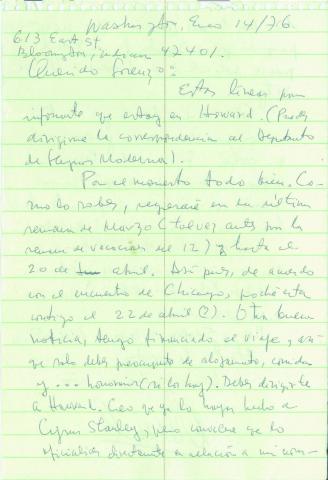 Washington, Ene 14/76.
613 East St.
Bloomington, Indian 47401.
Querido Lorenzo:
Estas líneas para
informarte que estoy en Howard. (Puedes
dirigirme la correspondencia al Depto
de Lenguas Modernas).
Por el momento todo bien. Co-
mo lo sabes, regresaré en la última
semana de Marzo (talvez antes por la
semana de vacaciones del 12) y hasta el
20 de abril. Así pues, de acuerdo
con el encuentro de Chicago, podré estar
contigo el 22 de abril (?). Otra buena
noticia, tengo financiado el viaje, así
que solo debes preocuparte de alojamiento, comidas
y ... honorarios (si los hay). Debes dirigirte
a Howard. Creo que ya lo hayas hecho a
Cyrus Stanley; pero conviene que lo
oficialices directamente en relación a mi nom-